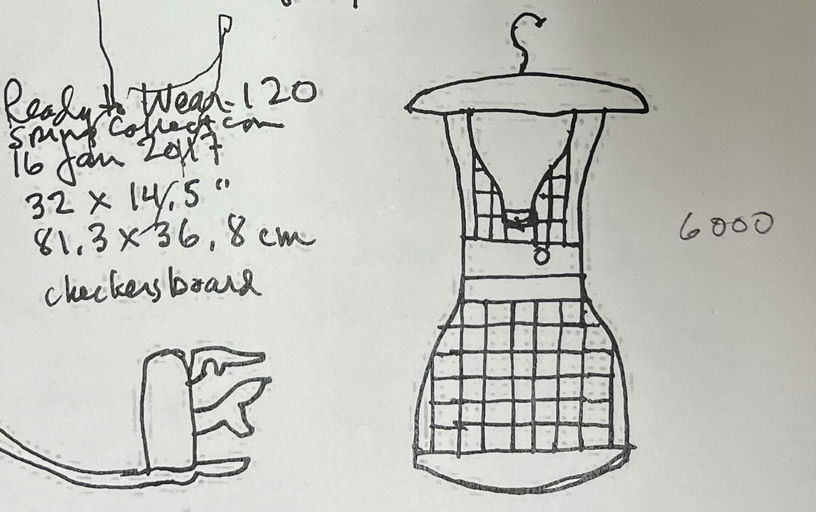 Ready to Wear 120
Spring Collection
16 Jan 2017
32 x 14.5 "
81.3 x 36.8 cm
checkersboard
6000